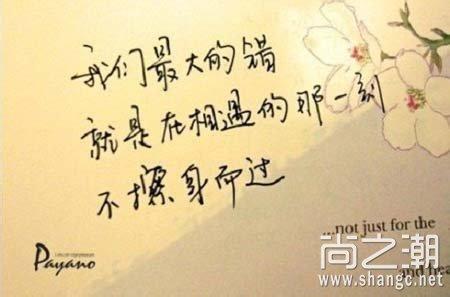 我们最大的错
就是在相遇的那一刻
不擦身而过
Payano
...not just for the
尚之潮
www.shangc.net
and hea